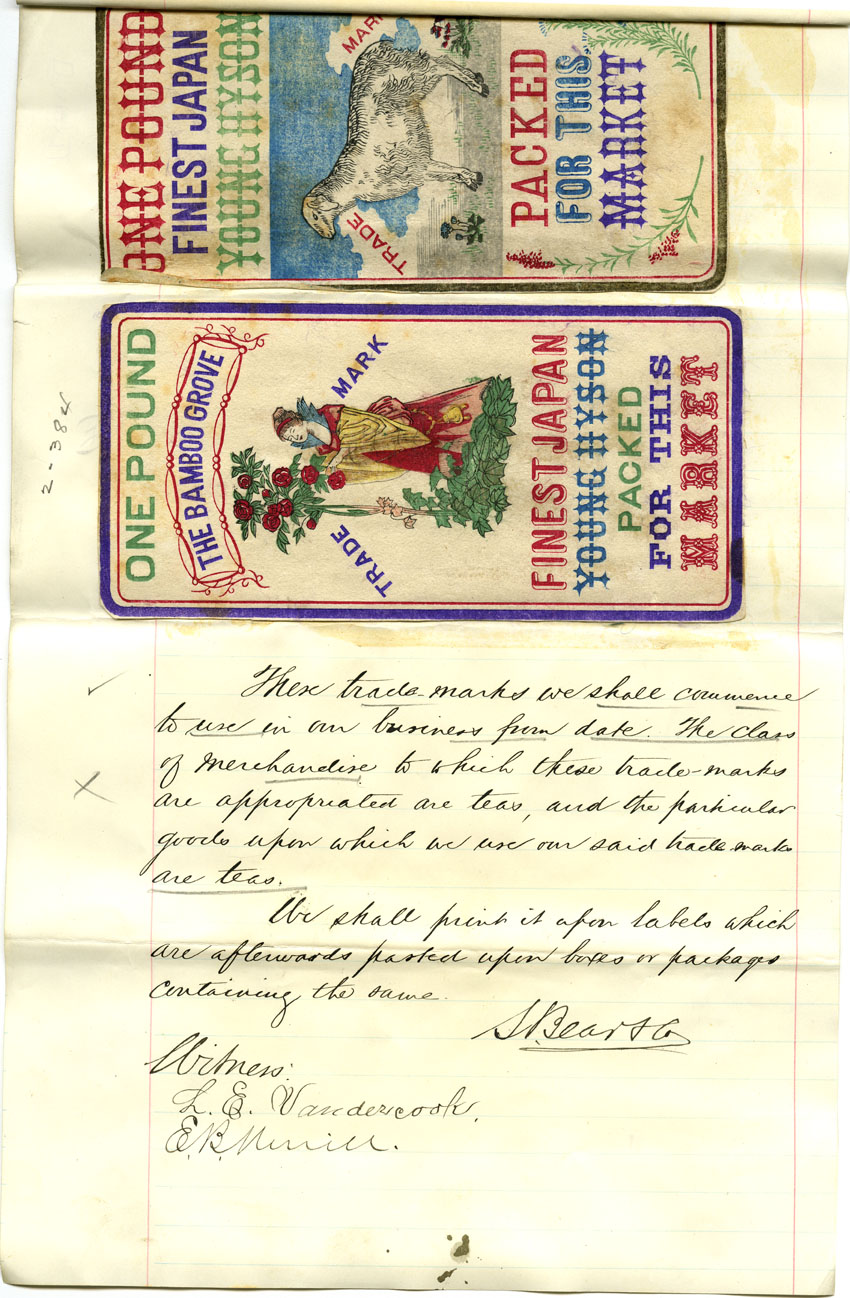 ONE POUND
FINEST JAPAN
YOUNG HYSON
TRADE MARK
PACKED
FOR THIS
MARKET
ONE POUND
THE BAMBOO GROVE
TRADE MARK
FINEST JAPAN
YOUNG HYSON
PACKED
FOR THIS
MARKET
2-384
These trade-marks we shall commence
to use in our business from date. The class
of merchandise to which these trade-marks
are appropriated are teas, and the particular
goods upon which we use our said trade-marks
are teas.
We shall print it upon labels which
are afterwards pasted upon boxes or packages
containing the same.
S. Bear & Co
Witness:
L. E. Vandercook.
E. B. Merrill.